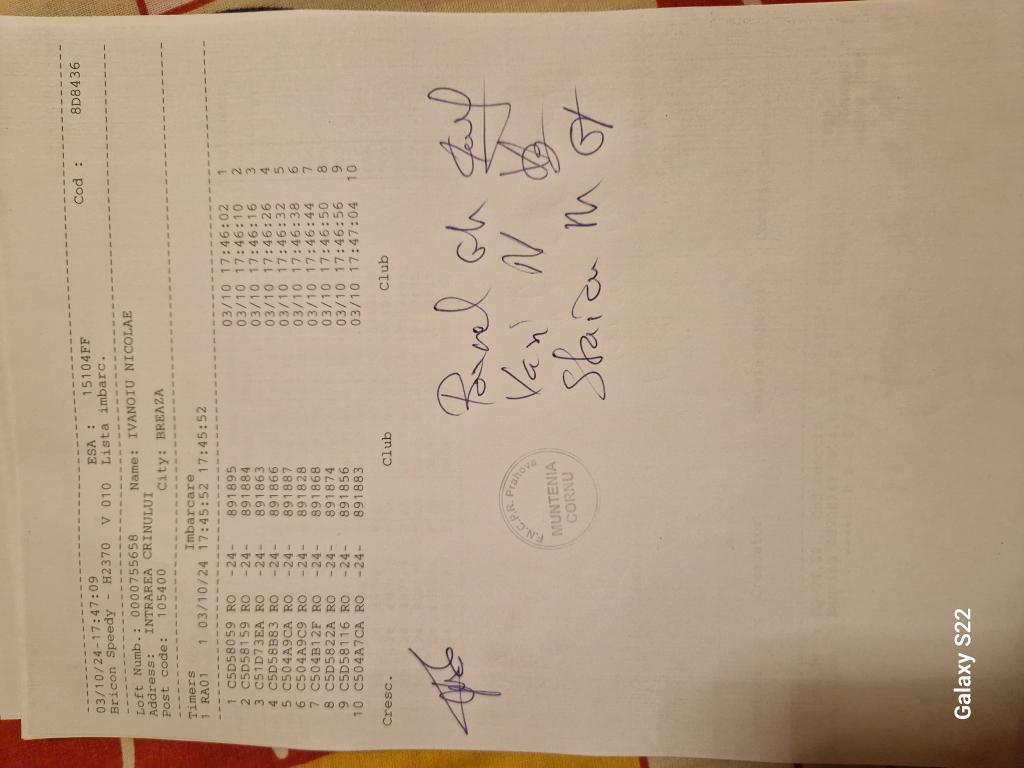 03/10/24-17:47:09 ESA : 15104FF Cod : 8D8436
Bricon Speedy - H2370 V 010 Lista imbarc.
Loft Numb.: 0000755658 Name: IVANOIU NICOLAE
Address: INTRAREA CRINULUI
Post code: 105400 City: BREAZA
Timers Imbarcare
1 RA01 1 03/10/24 17:45:52 17:45:52
1 C5D58059 RO -24- 891895 03/10 17:46:02 1
2 C5D58159 RO -24- 891884 03/10 17:46:10 2
3 C51D73EA RO -24- 891863 03/10 17:46:16 3
4 C5D58B83 RO -24- 891866 03/10 17:46:26 4
5 C504A9CA RO -24- 891887 03/10 17:46:32 5
6 C504A9C9 RO -24- 891828 03/10 17:46:38 6
7 C504B12F RO -24- 891868 03/10 17:46:44 7
8 C5D5822A RO -24- 891874 03/10 17:46:50 8
9 C5D58116 RO -24- 891856 03/10 17:46:56 9
10 C504A7CA RO -24- 891883 03/10 17:47:04 10
Cresc. Club Club
F.N.C.P.R. Prahova
MUNTENIA
CORNU
Galaxy S22